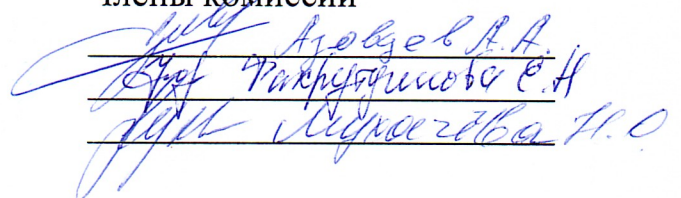 члены комиссии
Азовцев А.А.
Фахрутдинова Е.Н
Мухачёва Н.О